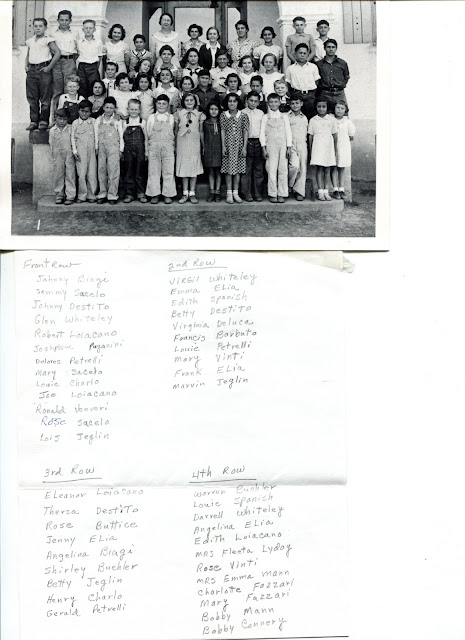 Front Row
Johnny Biagi
Sammy Sacelo
Johnny DestiTo
Glen Whiteley
Robert Loiacano
Josephine Paganini
Delores Petrelli
Mary Sacelo
Louie Charlo
Joe Loiacano
Ronald Vonvari
Rose Sacelo
Lois Jeglin
2nd Row
Virgil Whiteley
Emma Elia
Edith Spanish
Betty DestiTo
Virginia Deluca
Francis Barbuto
Louie Petrelli
Mary Vinti
Frank Elia
Marvin Jeglin
3rd Row
Eleanor Loiacano
Thersa DestiTo
Rose Buttice
Jenny Elia
Angelina Biagi
Shirley Buehler
Betty Jeglin
Henry Charlo
Gerald Petrelli
4th Row
Warren Buehler
Louie Spanish
Darrell Whiteley
Angelina Elia
Edith Loiacano
MRS Fleeta Lyday
Rose Vinti
MRS Emma Mann
Charlotte Fazzari
Mary Fazzari
Bobby Mann
Bobby Connery